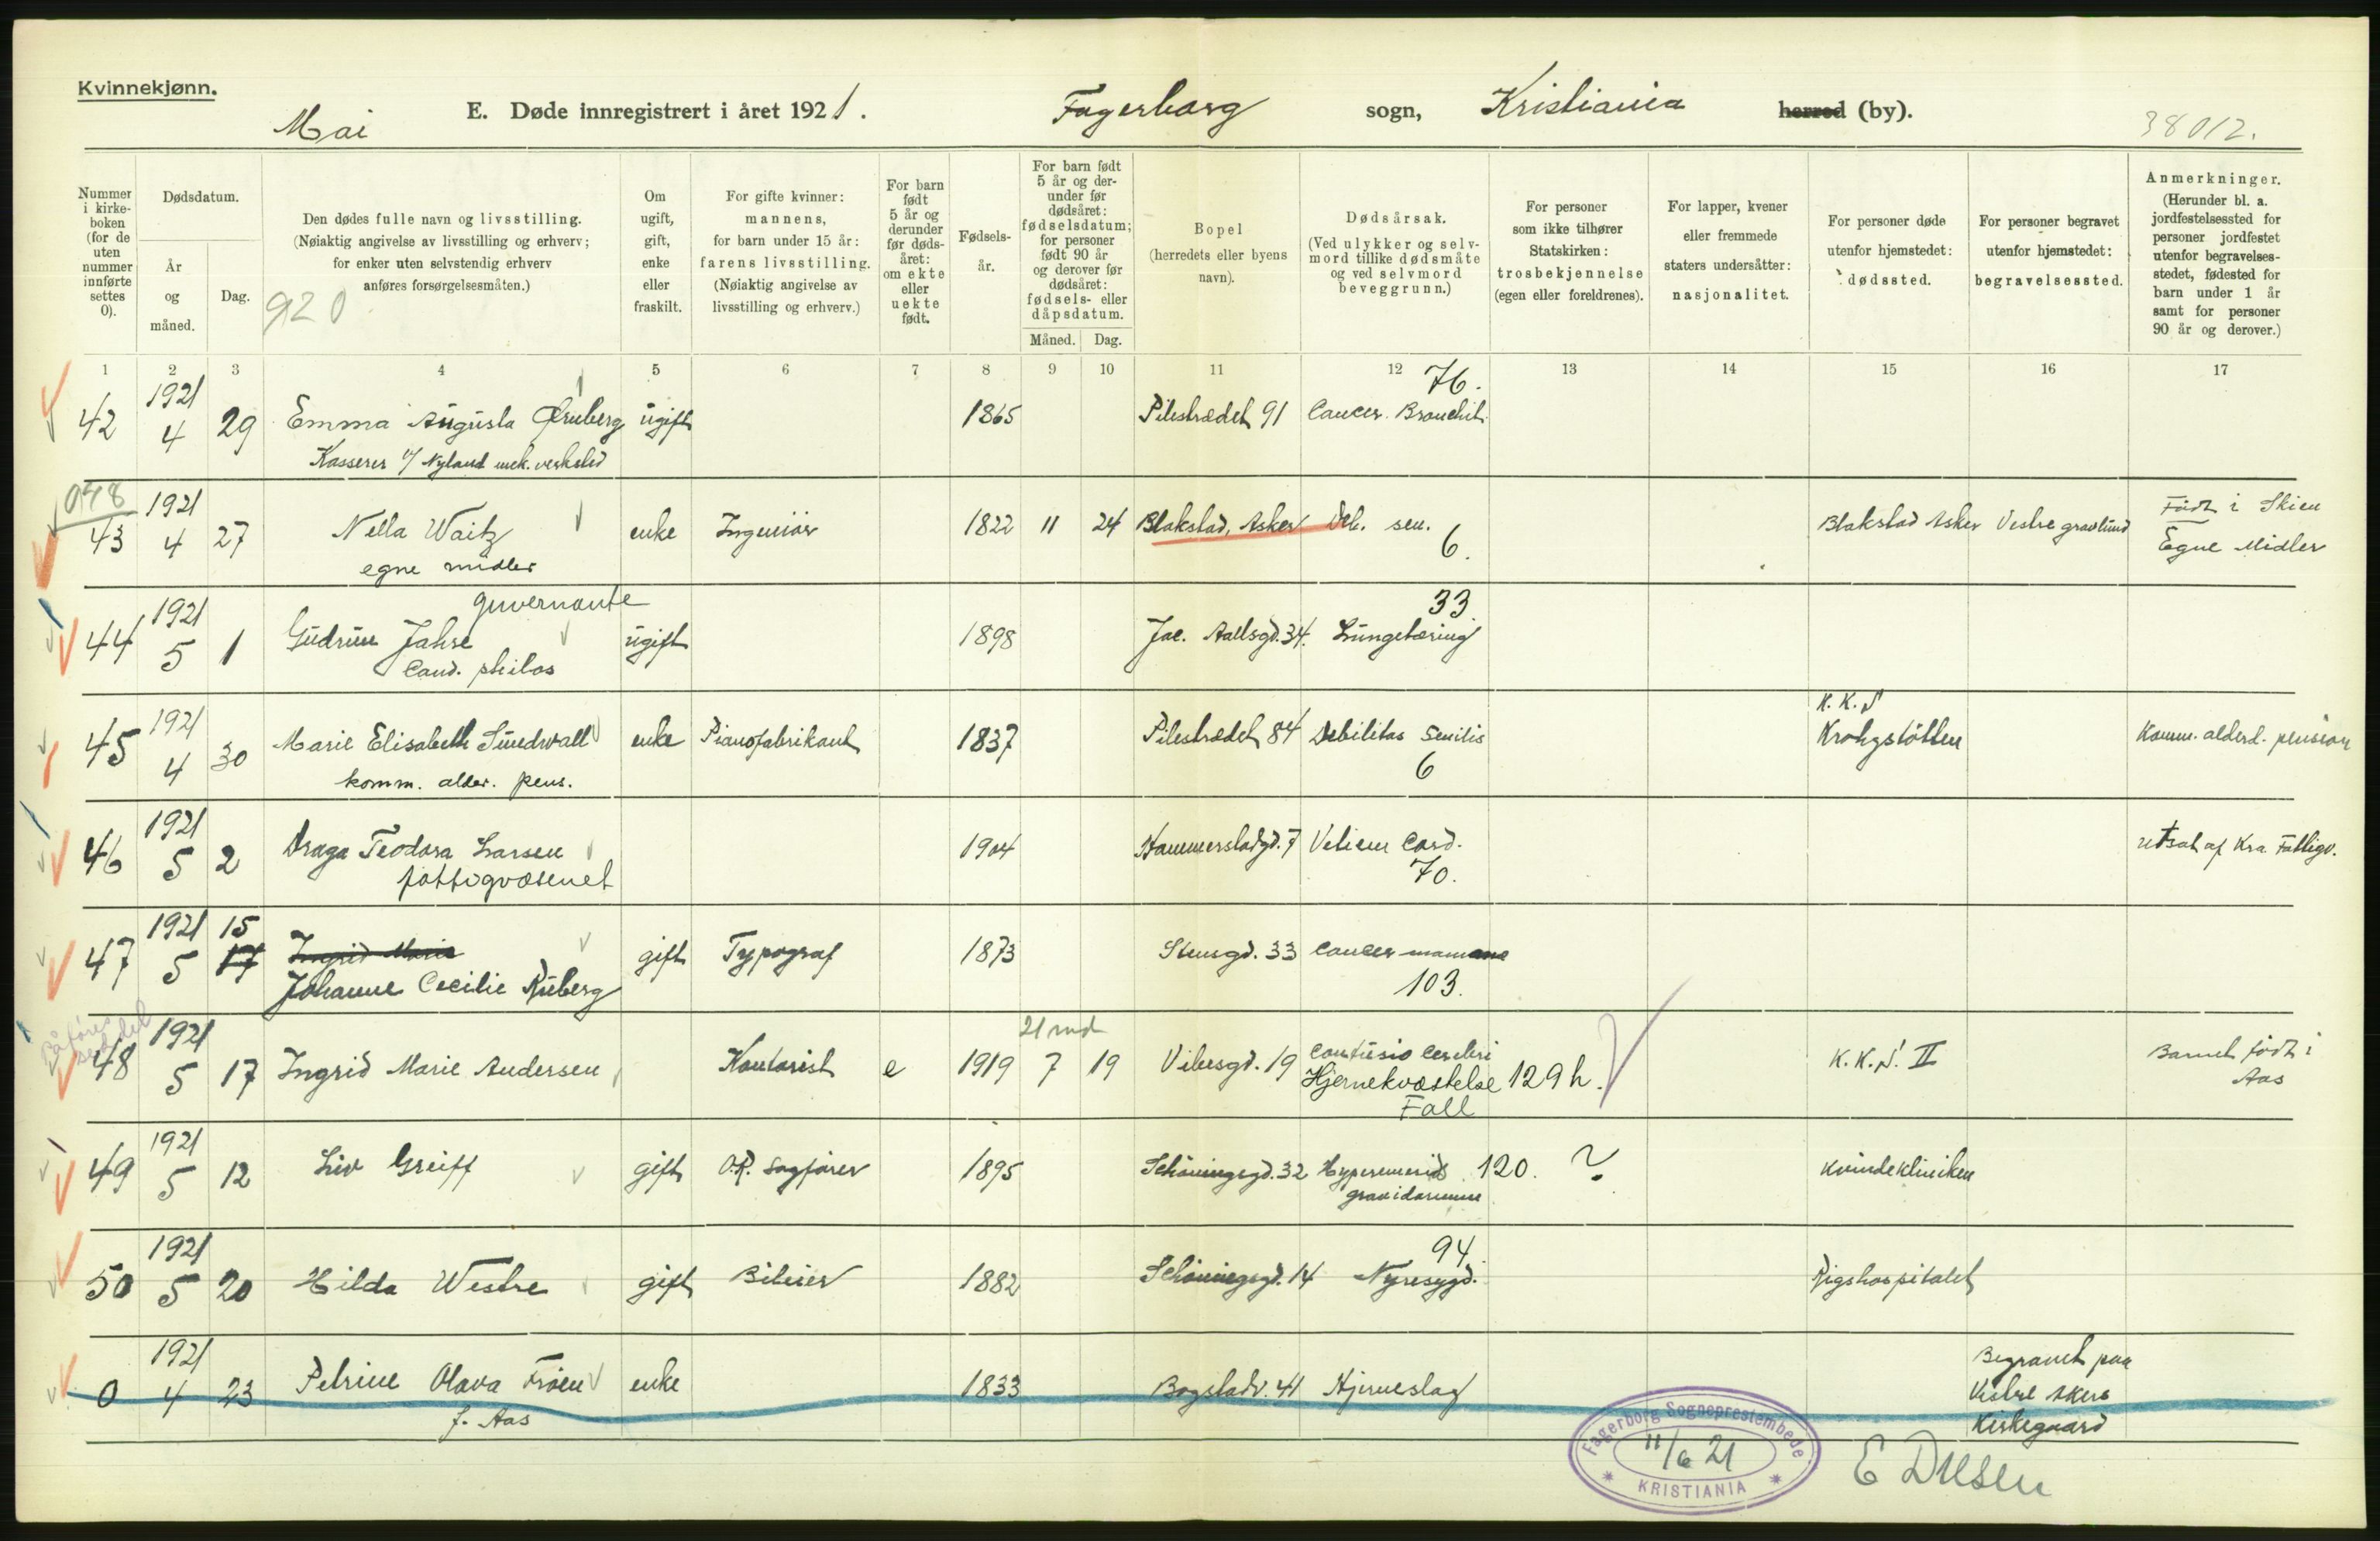 Kvinnekjønn.
Mai
E. Døde innregistrert i året 1921.
Fagerborg sogn, Kristiania herred (by).
38012.
Nummer i kirke-boken (for de uten nummer innførte settes 0).
Dødsdatum.
År og måned.
Dag.
Den dødes fulle navn og livsstilling.
(Nøiaktig angivelse av livsstilling og erhverv;
for enker uten selvstendig erhverv
anføres forsørgelsesmåten.)
920
Om ugift, gift, enke eller fraskilt.
For gifte kvinner:
mannens,
for barn under 15 år:
farens livsstilling.
(Nøiaktig angivelse av
livsstilling og erhverv.)
For barn født 5 år og derunder før døds-året: om ekte eller uekte født.
Fødsels-år.
For barn født 5 år og der-under før dødsåret: fødselsdatum; for personer født 90 år og derover før dødsåret: fødsels- eller dåpsdatum.
Måned. Dag.
Bopel
(herredets eller byens
navn).
Dødsårsak.
(Ved ulykker og selv-
mord tillike dødsmåte
og ved selvmord
beveggrunn.)
For personer
som ikke tilhører
Statskirken:
trosbekjennelse
(egen eller foreldrenes).
For lapper, kvener
eller fremmede
staters undersåtter:
nasjonalitet.
For personer døde
utenfor hjemstedet:
dødssted.
For personer begravet
utenfor hjemstedet:
begravelsessted.
Anmerkninger.
(Herunder bl. a.
jordfestelsessted for
personer jordfestet
utenfor begravelses-
stedet, fødested for
barn under 1 år
samt for personer
90 år og derover.)
1 2 3 4 5 6 7 8 9 10 11 12 13 14 15 16 17
1921 76.
42 4 29 Emma Augusta ugift 1865 Pilestrædet 91 Cancer. Bronchit.
Kasserer v/ Nyland mek. verksted
048 1921
43 4 27 Nella Waitz enke Ingeniør 1822 11 24 Blakstad, Asker Deb. sen. 6. Blakstad Asker Vestre gravlund Født i Skien
egne midler Egne Midler
1921 guvernante 33
44 5 1 Gudrun Jahre ugift 1898 Jac. Aallsgd. 34. Lungetæring
Cand. philos
1921 K.K.S
45 4 30 Marie Elisabeth Smedvall enke Pianofabrikant 1837 Pilestrædet 84 Debilitas Senilis Krohgstøtten Komm. alderd. pension
komm. alder. pens. 6
1921
46 5 2 Draga Teodora Larsen 1904 Hammerstadgd. 7 Vitium Cord. utsat af Kra. Fattigv.
fattigvæsenet 70.
1921 15
47 5 17 Ingrid Marie gift Typograf 1873 Stensgd. 33 Cancer mammae
Johanne Cecilie Ruberg 103.
1921 21 md
48 5 17 Ingrid Marie Andersen Kontorist e 1919 7 19 Vibesgd. 19 Contusio Cerebri K.K.S. II Barnet født i
Hjernekvæstelse 129 h. Aas
Fall
1921
49 5 12 Liv Greiff gift O.R. Sagfører 1895 Schøningsgd. 32 Hyperemesis 120. ? Kvindekliniken
gravidarum
1921 94.
50 5 20 Hilda Westre gift Bileier 1882 Schøningsgd. 14 Nyresygd. Rigshospitalet
1921 Begravet paa
0 4 23 Petrine Olava Frøen enke 1833 Bogstadv. 41 Hjerneslag Vestre Akers
f. Aas Kirkegaard
Fagerborg Sogneprestembede
11/6 21
KRISTIANIA